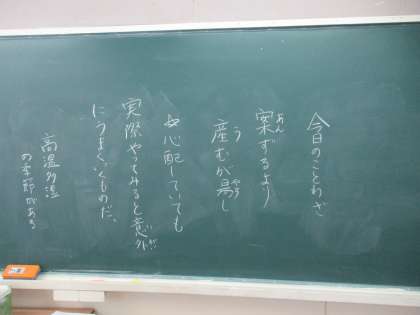 今日のことわざ
案ずるより
産むが易し
☆心配していても
実際やってみると意外
にうまくいくものだ。
高温多湿
の季節がある